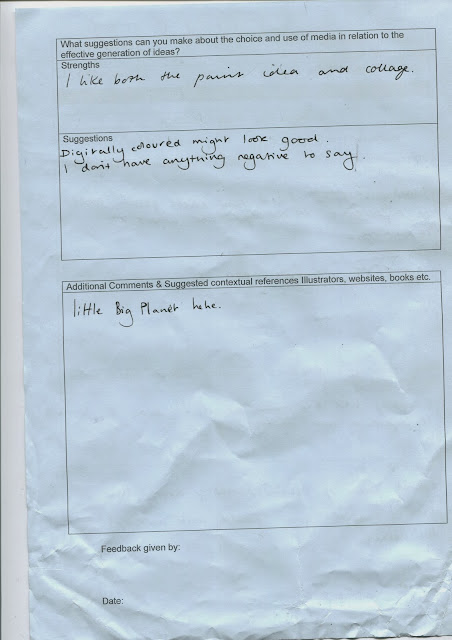 What suggestions can you make about the choice and use of media in relation to the
effective generation of ideas?
Strengths
I like both the paint idea and collage.
Suggestions
Digitally coloured might look good.
I don't have anything negative to say.
Additional Comments & Suggested contextual references Illustrators, websites, books etc.
little Big Planet hehe.
Feedback given by:
Date: